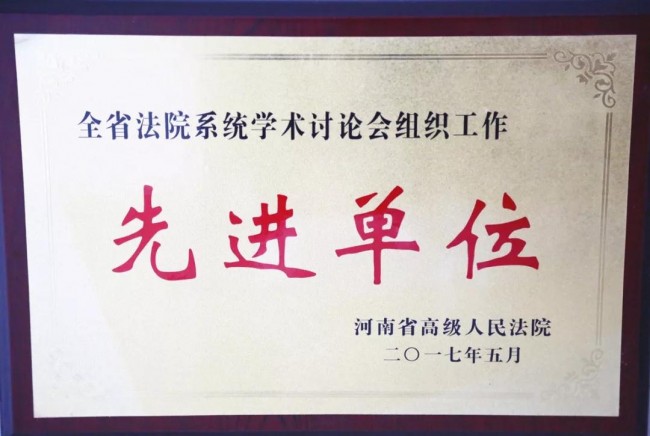 全省法院系统学术讨论会组织工作
先进单位
河南省高级人民法院
二〇一七年五月